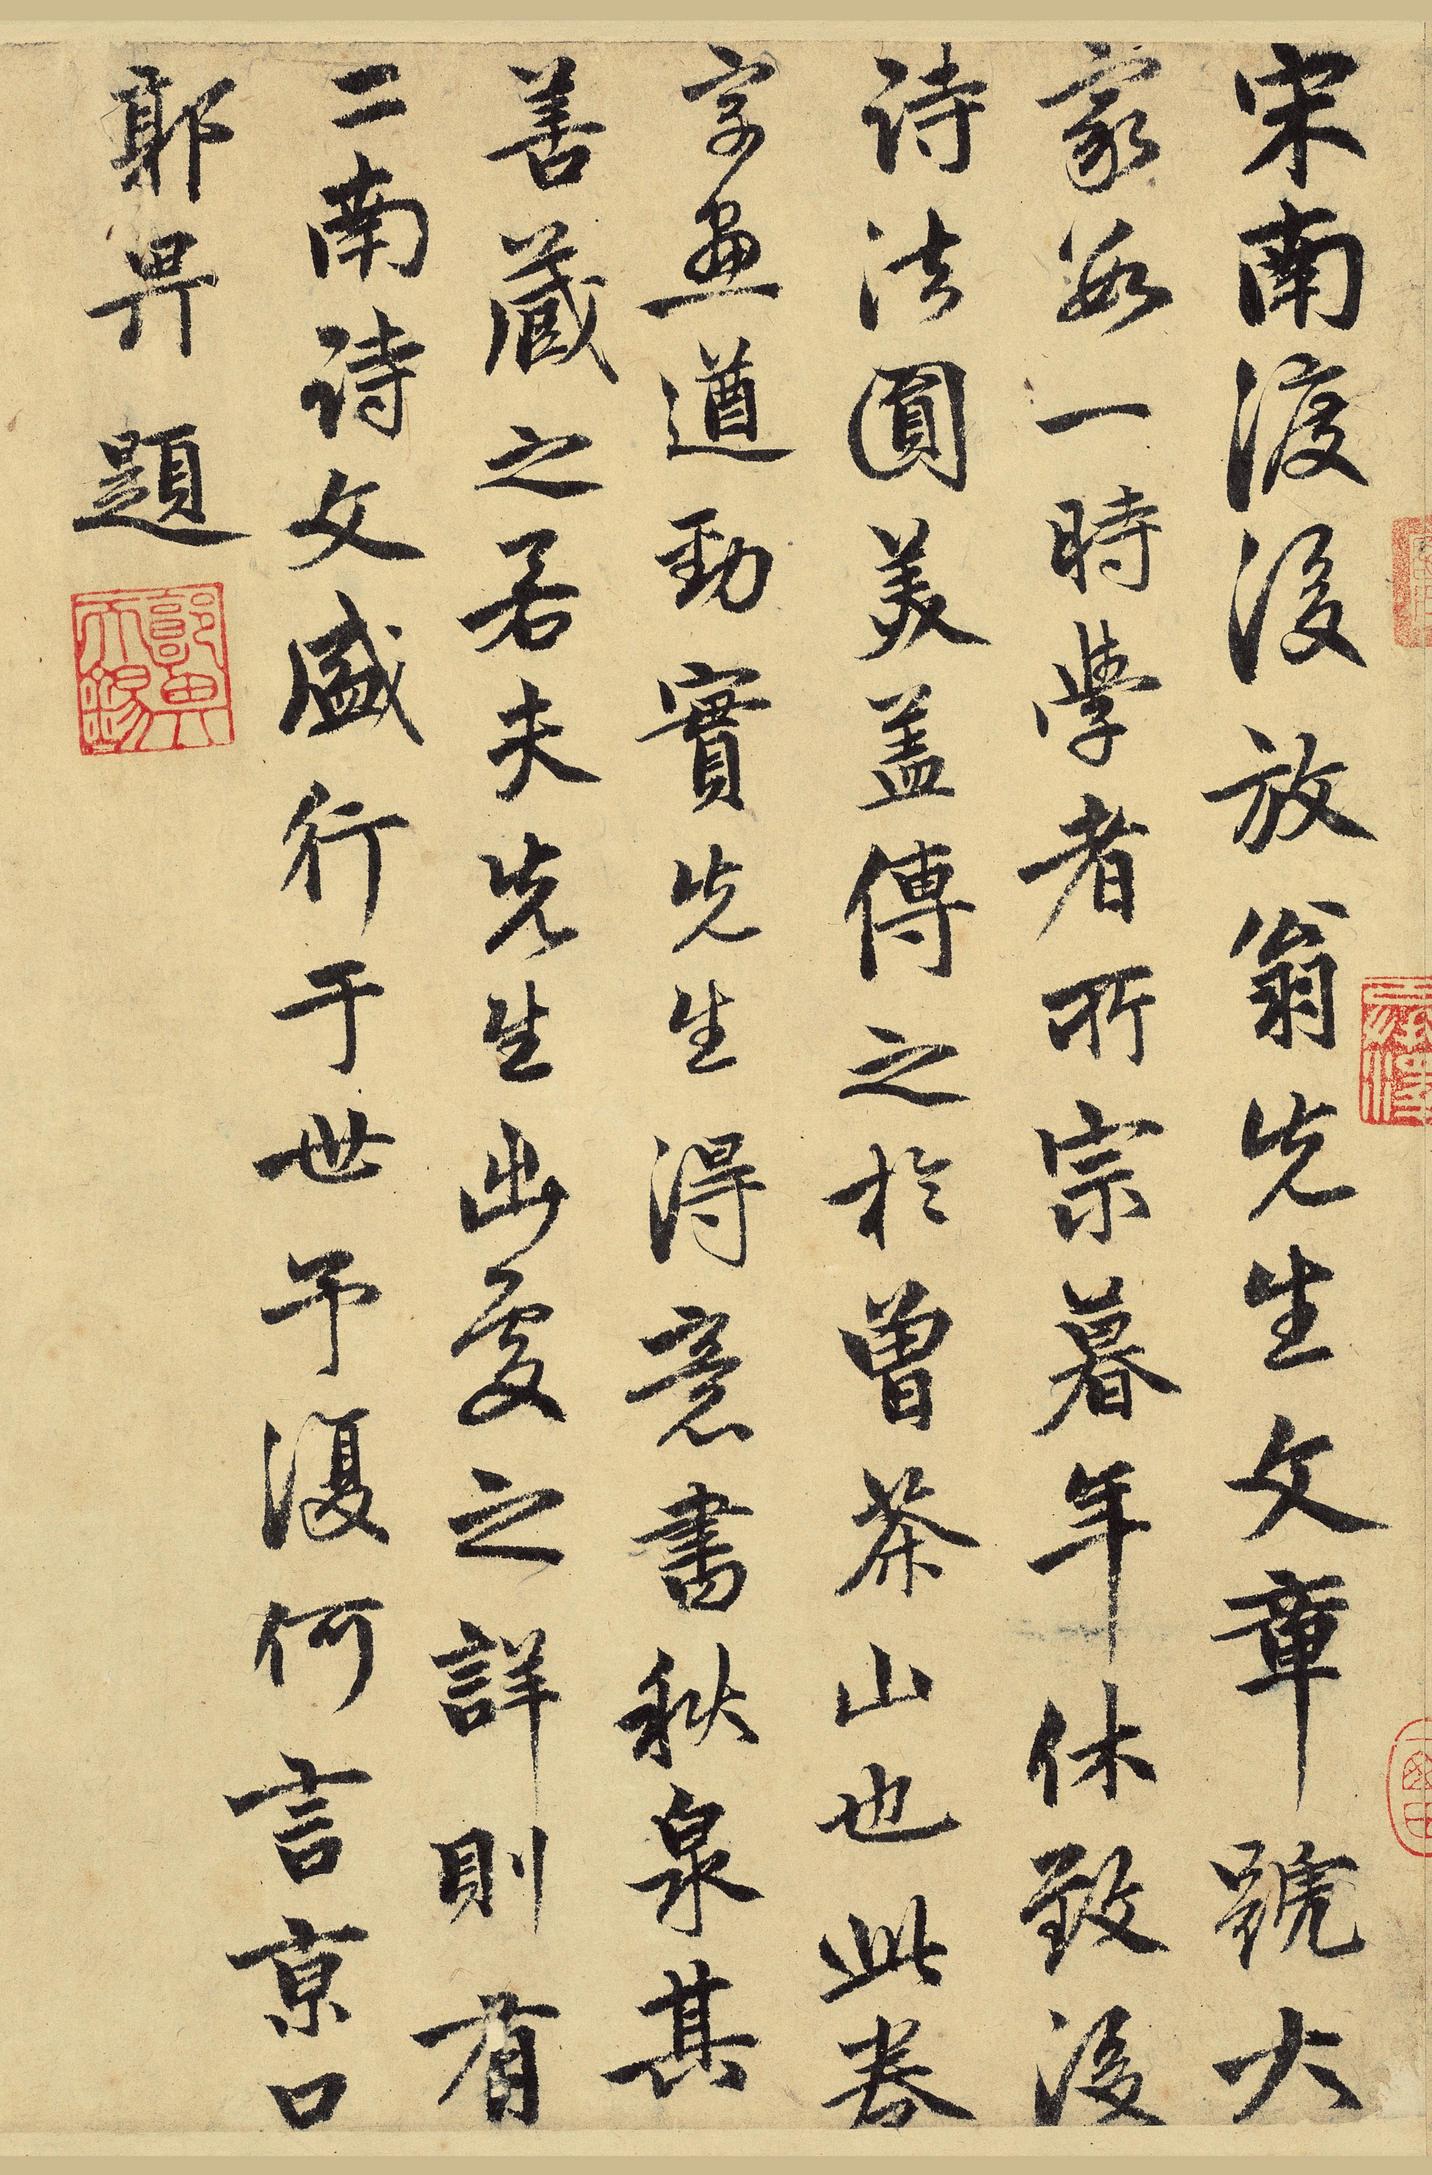 宋南渡後放翁先生文章號大
家數一時學者所宗暮年休致後
詩法圓美盖傳之於曾茶山也此卷
字畫遒勁實先生得意書秋泉其
善藏之若夫先生出處之詳則有
二南詩文盛行于世予復何言京口
郭畀題
郭畀天錫